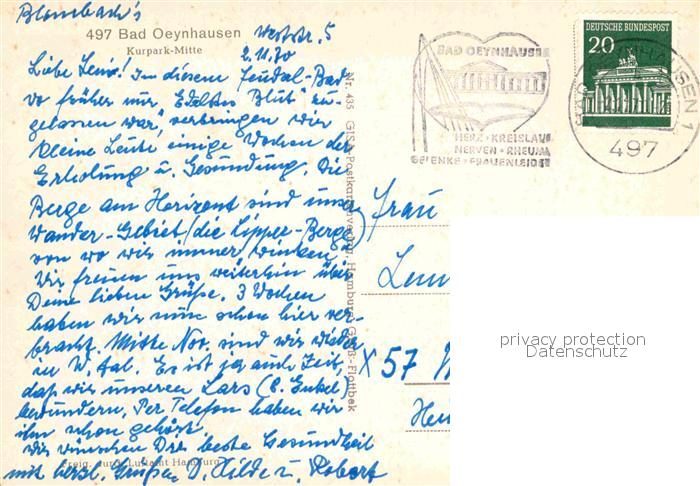 Blombach's
497 Bad Oeynhausen
Kurpark-Mitte
Weststr. 5
2.11.70
Liebe Leni! In diesem feudal-Bad
wo früher nur „Edelstes Blut" zu-
gelassen war, verbringen wir
kleine Leute einige Wochen der
Erholung u. Gesundung. Die
Berge am Horizont sind unser
Wander-Gebiet (die Lipper-Berge)
von wo wir immer winken.
Wir freuen uns weiterhin über
Deine lieben Grüße. 3 Wochen
haben wir nun schon hier ver-
bracht. Mitte Nov. sind wir wieder
in W.tal. Es ist ja auch Zeit,
daß wir unseren Lars (8. Enkel)
bewundern. Per Telefon haben wir
ihn schon gehört.
Wir wünschen Dir beste Gesundheit
mit herzl. Grüßen D. Hilde u. Robert
Freig. durch Luftamt Hamburg
Nr. 435 GISA Postkartenverlag, Hamburg Groß-Flottbek
BAD OEYNHAUSEN
HERZ · KREISLAUF
NERVEN · RHEUMA
GELENKE · FRAUENLEIDEN
DEUTSCHE BUNDESPOST
20
497
Frau
X 57
privacy protection
Datenschutz